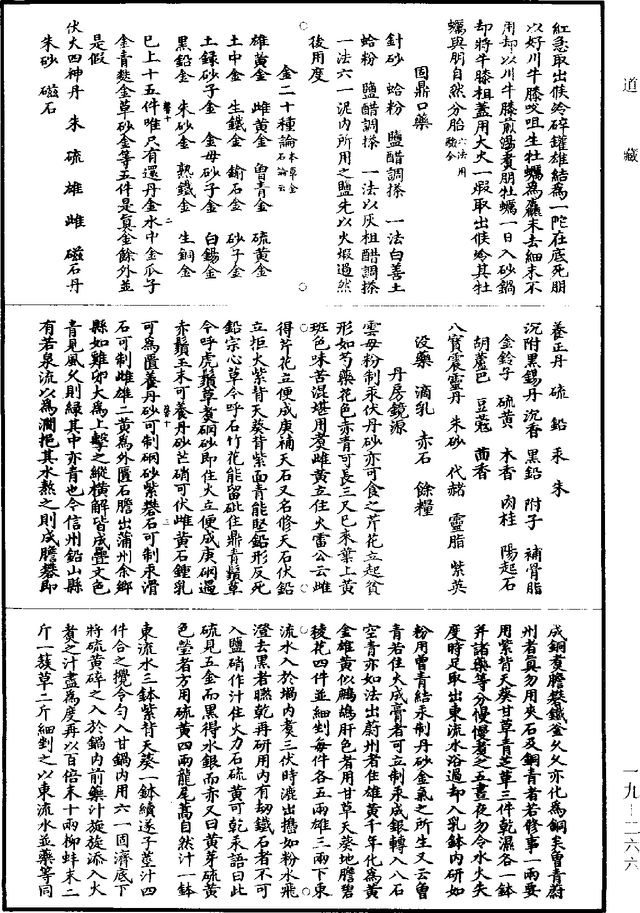 道藏
紅急取出候冷碎鑵雄結為一陀在底死朋
以好川牛膝㕮咀生牡蠣為麤末去細末不
用却以川牛膝煎湯煮朋牡蠣一日入砂鍋
却將牛膝柤蓋用大火一煅取出候冷其牡
蠣與朋自然分胎
固鼎口藥
針砂 蛤粉 鹽醋調搽 一法白善土
蛤粉 鹽醋調搽 一法以灰柤醋調搽
一法六一泥內所用之鹽先以火煅過然
後用度
金二十種論
雄黃金 雌黃金 曾青金 硫黃金
土中金 生鐵金 鍮石金 砂子金
土綠砂子金 金母砂子金 白錫金
黑鉛金 朱砂金 熟鐵金 生銅金
已上十五件唯只有還丹金水中金瓜子
金青麩金草砂金等五件是真金餘外並
是假
伏火四神丹 朱 硫 雄 雌 磁石丹
朱砂 磁石
養正丹 硫 鉛 汞 朱
沉附黑錫丹 沉香 黑鉛 附子 補骨脂
金鈴子 硫黃 木香 肉桂 陽起石
胡蘆巴 豆蔻 茴香
八寶震靈丹 朱砂 代赭 靈脂 紫英
沒藥 滴乳 赤石 餘糧
丹房鏡源
雲母粉制汞伏丹砂亦可食之芹花立起貧
形如芍藥花色赤青可長三又已來葉上黃
班色味苦混堪用煮雌黃立住火雷公云雌
得芹花立便成庚補天石又名修天石伏鉛
立拒火紫背天葵背紫面青能堅鉛形反死
鉛宗心草今呼石竹花能留砒住鼎青鬚草
今呼虎鬚草煮硇砂即住火立便成庚硇過
赤鬚玉禾可養丹砂芒硝可伏雌黃石鍾乳
可為匱養丹砂可制硇砂紫礬石可制汞滑
石可制雌雄二黃為外匱石膽出蒲州余鄉
縣如雞卵大為上擊之縱橫解皆成疊文色
青見風久則綠其中亦青也今信州鉛山縣
有若泉流以為澗挹其水熱之則成膽礬即
成銅煑膽礬鐵釜久久亦化為銅矣曾青蔚
州者真勿用夾石及銅青者若修事一兩要
用紫背天葵甘草青芝草三件乾濕各一鉢
并諸藥等分慢慢煮之五晝夜勿令水火失
度時足取出東流水浴過却入乳鉢內研如
粉用曾青結汞制丹砂金氣之所生又云曾
青若住火成膏者可立制汞成銀轉入八石
空青亦如法出蔚州者住雄黃千年化為黃
金雄黃似鷓鴣肝色者用甘草天葵地膽碧
稜花四件並細剉每件各五兩雄三兩下東
流水入於堝內煮三伏時漉出擣如粉水飛
澄去黑者曬乾再研用內有刼鐵石者不可
入鹽硝作汁住火力石硫黃可乾汞語曰此
硫見五金而黑得水銀而赤又曰黃芽硫黃
色瑩者方用硫黃四兩龍尾蒿自然汁一鉢
東流水三鉢紫背天葵一鉢續遂子莖汁四
件合之攪令勻入甘鍋內用六一固濟底下
將硫黃碎之入於鍋內前藥汁旋旋添入火
煮之汁盡為度再以百倍末十兩柳蚌末二
斤一簇草二斤細剉之以東流水並藥等同
一九-二六六